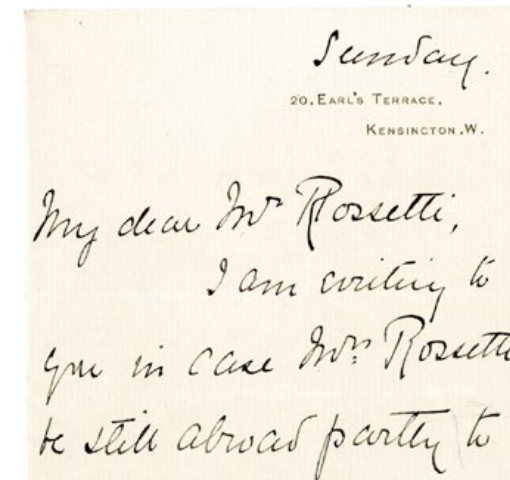 Sunday.
20, EARL'S TERRACE,
KENSINGTON. W.
My dear Mr Rossetti,
I am writing to
you in case Mrs. Rossetti
be still abroad partly to